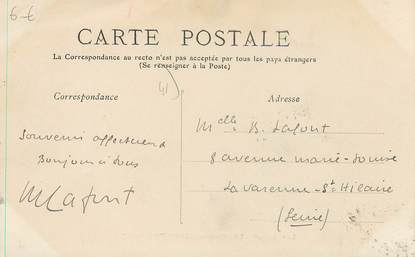 6 €
CARTE POSTALE
La Correspondance au recto n'est pas acceptée par tous les pays étrangers
(Se renseigner à la Poste)
41
Correspondance
Adresse
Souvenir affectueux
Bonjour à tous
M Lafont
Melle B. Lafont
8 avenue marie-Louise
La varenne-St Hilaire
(Seine)